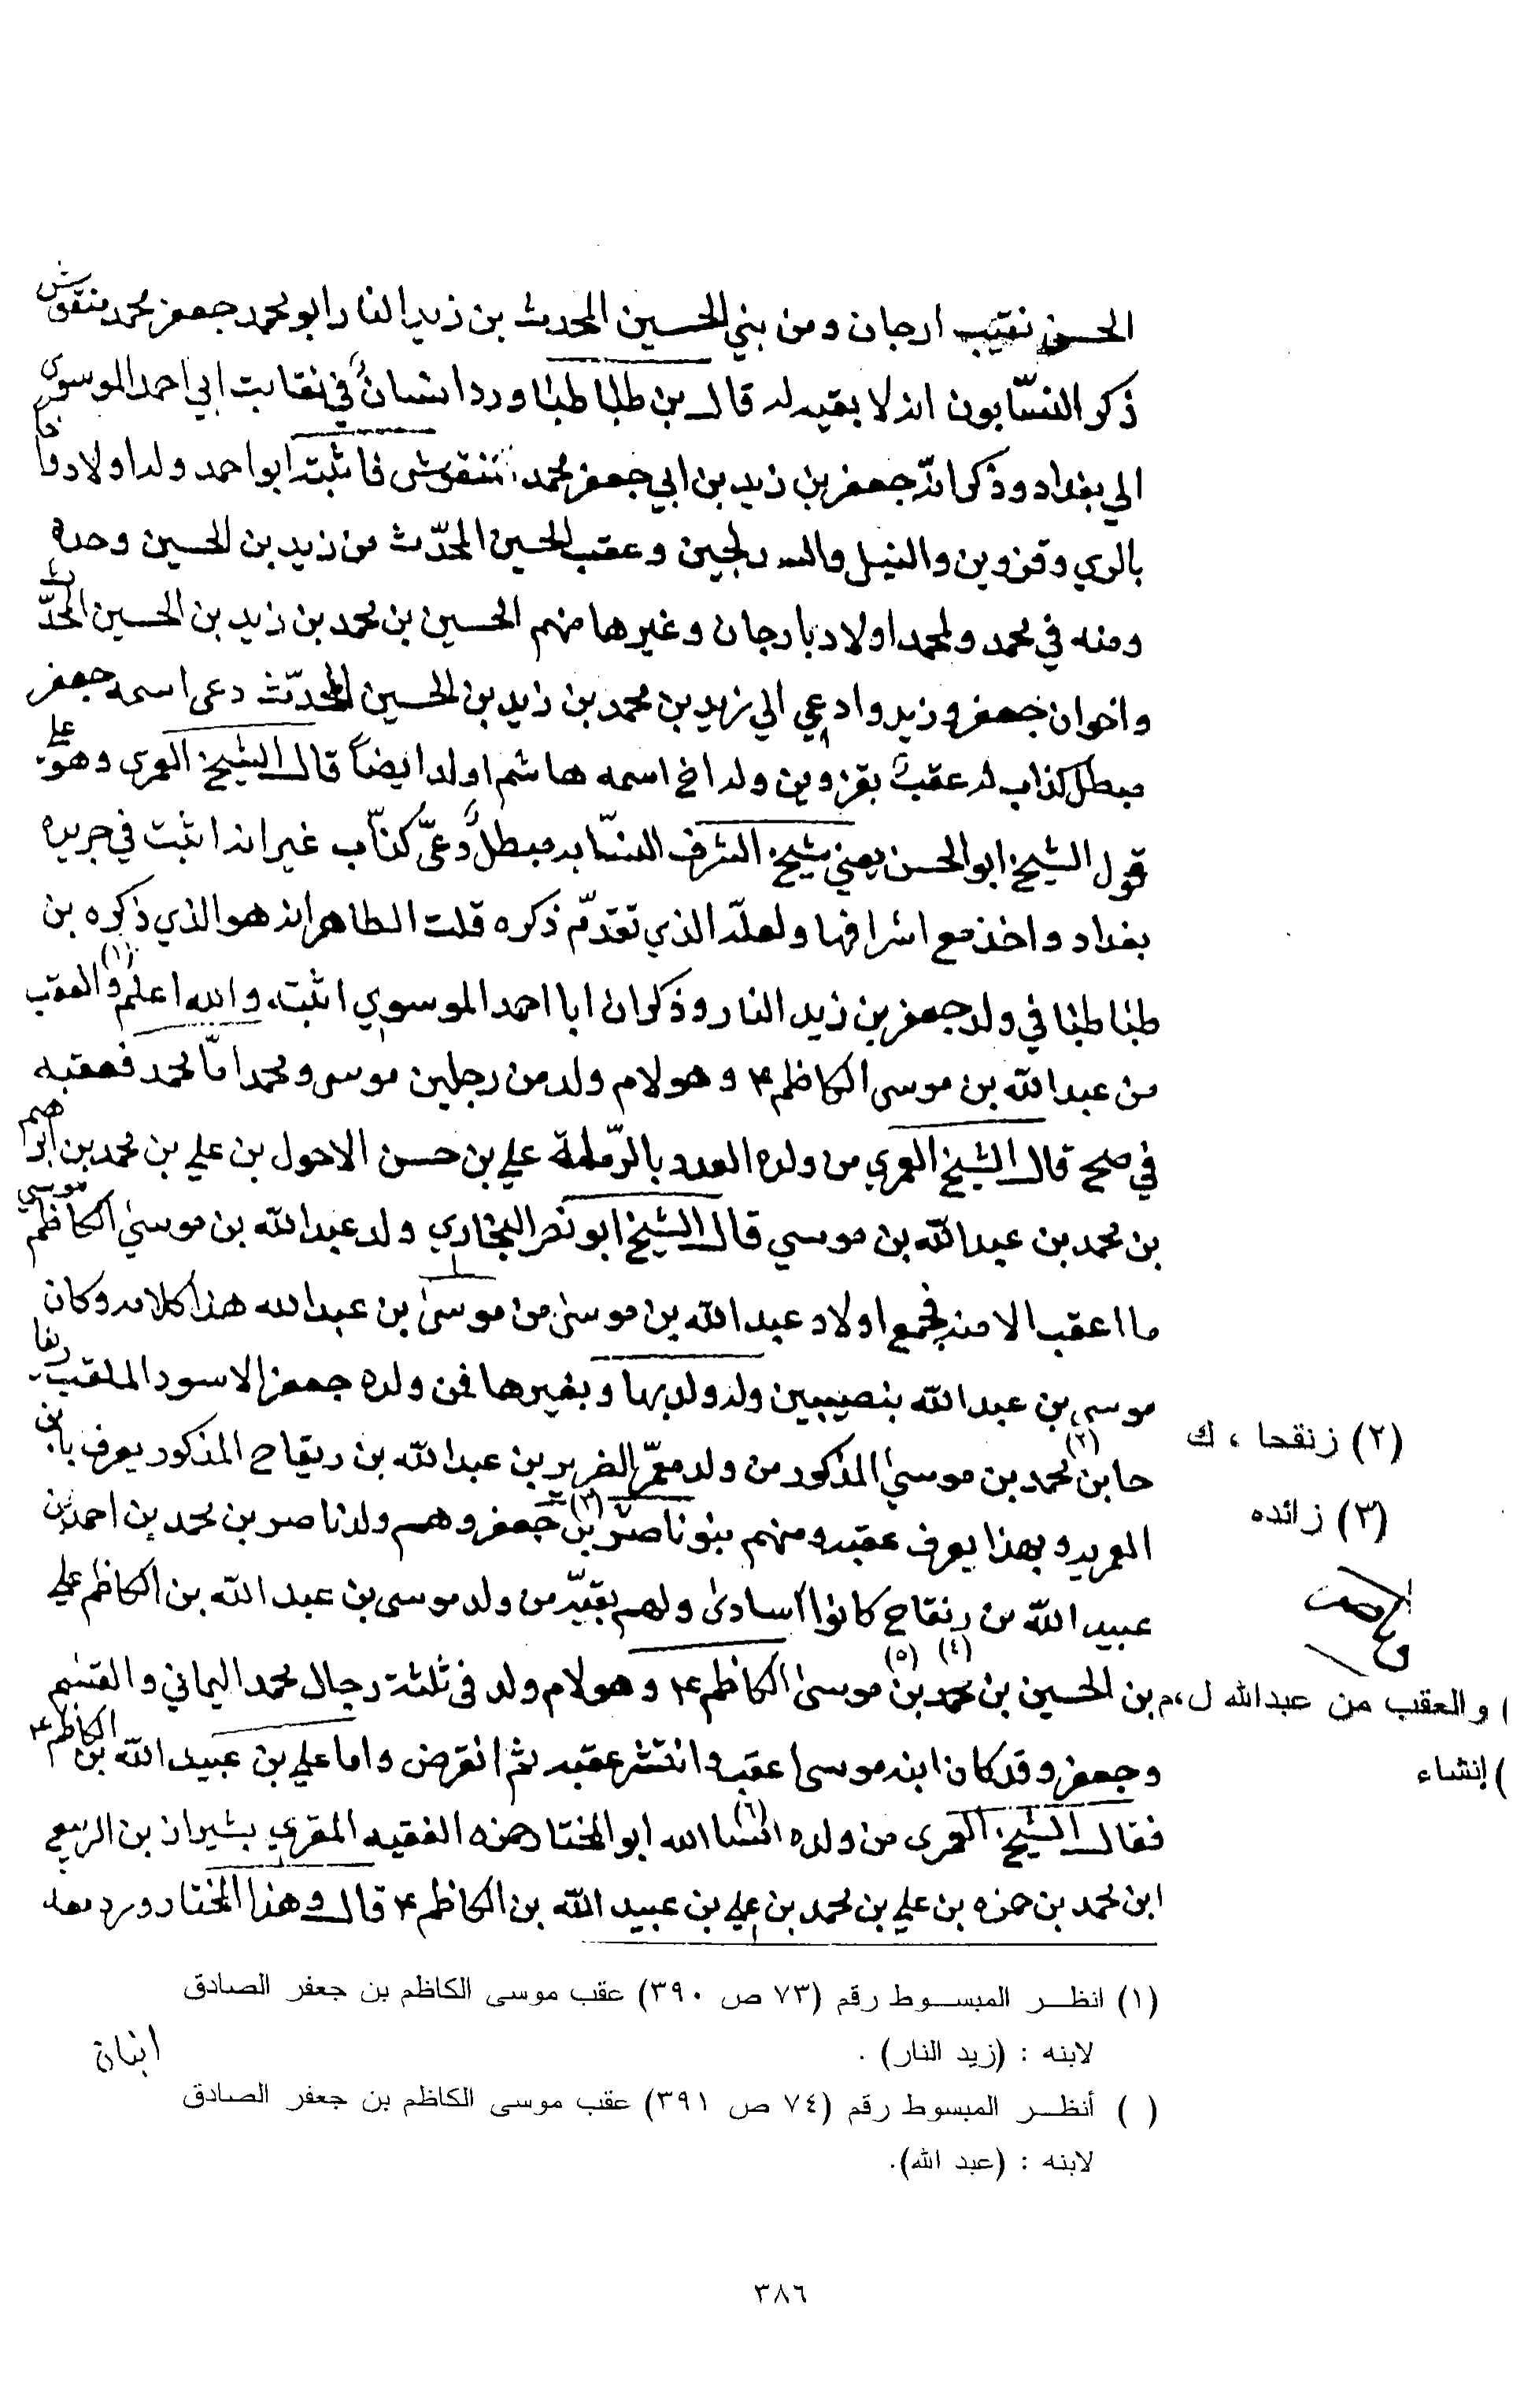 الحسن نقيب ارجان ومن بني الحسين المحدث بن زيد النار ابو محمد جعفر محمد منقوش
ذكر النسّابون انه لا بقيه له قال بن طباطبا ورد انسان في نقابت ابي احمد الموسوي
الي بغداد وذكر انه جعفر بن زيد بن ابي جعفر محمد منقوش فاثبته ابو احمد وله اولاد
بالري وقزوين والنيل وعقب الحسين المحدّث من زيد بن الحسين وحده
ومنه في محمد ولمحمد اولاد بارجان وغيرها منهم الحسين بن محمد بن زيد بن الحسين المحدّث
واخوان جعفر وزيد وادعي الي زيد بن محمد بن زيد بن الحسين المحدّث دعي اسمه جعفر
مبطل كذاب له عقب بقزوين وله اخ اسمه هاشم اولد ايضاً قال الشيخ العمري وهو علي
قول الشيخ ابو الحسن يعني شيخ الشرف النسّابه مبطل دعيّ كذّاب غير انه اثبت في جريده
بغداد واخذ مع اشرافها ولعله الذي تقدّم ذكره قلت الظاهر انه هو الذي ذكره بن
طباطبا في ولد جعفر بن زيد النار وذكر ان ابا احمد الموسوي اثبته والله اعلم (١) والعقب
من عبد الله بن موسى الكاظم ع وهو لام ولد من رجلين موسى ومحمد امّا محمد فعقبه
في صح قال الشيخ العمري من ولده العدد بالرّملة علي بن حسن الاحول بن علي بن محمد بن ابراهيم
بن محمد بن عبد الله بن موسي قال الشيخ ابو نصر البخاري ولد عبد الله بن موسيٰ الكاظم موسي
ما اعقب الا منه فجمع اولاد عبد الله بن موسىٰ من موسىٰ بن عبد الله هذا كلامه وكان
موسى بن عبد الله بنصيبين وله ولد بها وبغيرها فمن ولده جعفر الاسود الملقب زنقا
حا بن (٢) محمد بن موسىٰ المذكور من ولد معمّر الضرير بن عبد الله بن زنقاح المذكور يعرف بابن
العمريه وبهذا يعرف عقبه ومنهم بنو ناصر بن (٣) جعفر وهم ولد ناصر بن محمد بن احمد بن
عبيد الله من زنقاح كانوا ولهم بقيّة من ولد موسى بن عبد الله بن الكاظم علي
بن الحسين بن محمد (٤) بن (٥) موسىٰ الكاظم ع وهو لام ولد في ثلثة رجال محمد اليماني والقسم
وجعفر وقد كان ابنه موسىٰ اعقب وانتشر عقبه ثم انقرض واما علي بن عبيد الله بن الكاظم ع
فقال الشيخ العمري من ولده انشا (٦) الله ابو المختار حمزه الفقيه المقري بشيراز بن الربيع
ابن محمد بن حمزه بن علي بن محمد بن علي بن عبيد الله بن الكاظم ع قال وهذا المختار ورد بغد
(٢) زنقحا ، ك
(٣) زائده
) والعقب من عبدالله ل،م
) إنشاء
(١) انظر المبسوط رقم (٧٣ ص ٣٩٠) عقب موسى الكاظم بن جعفر الصادق
لابنه : (زيد النار) .
( ) أنظر المبسوط رقم (٧٤ ص ٣٩١) عقب موسى الكاظم بن جعفر الصادق
لابنه : (عبد الله).
٣٨٦